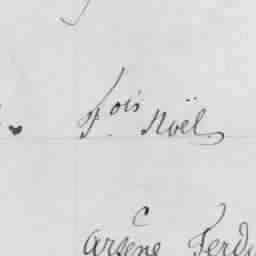 fois Noël
c
Arsène Ferd